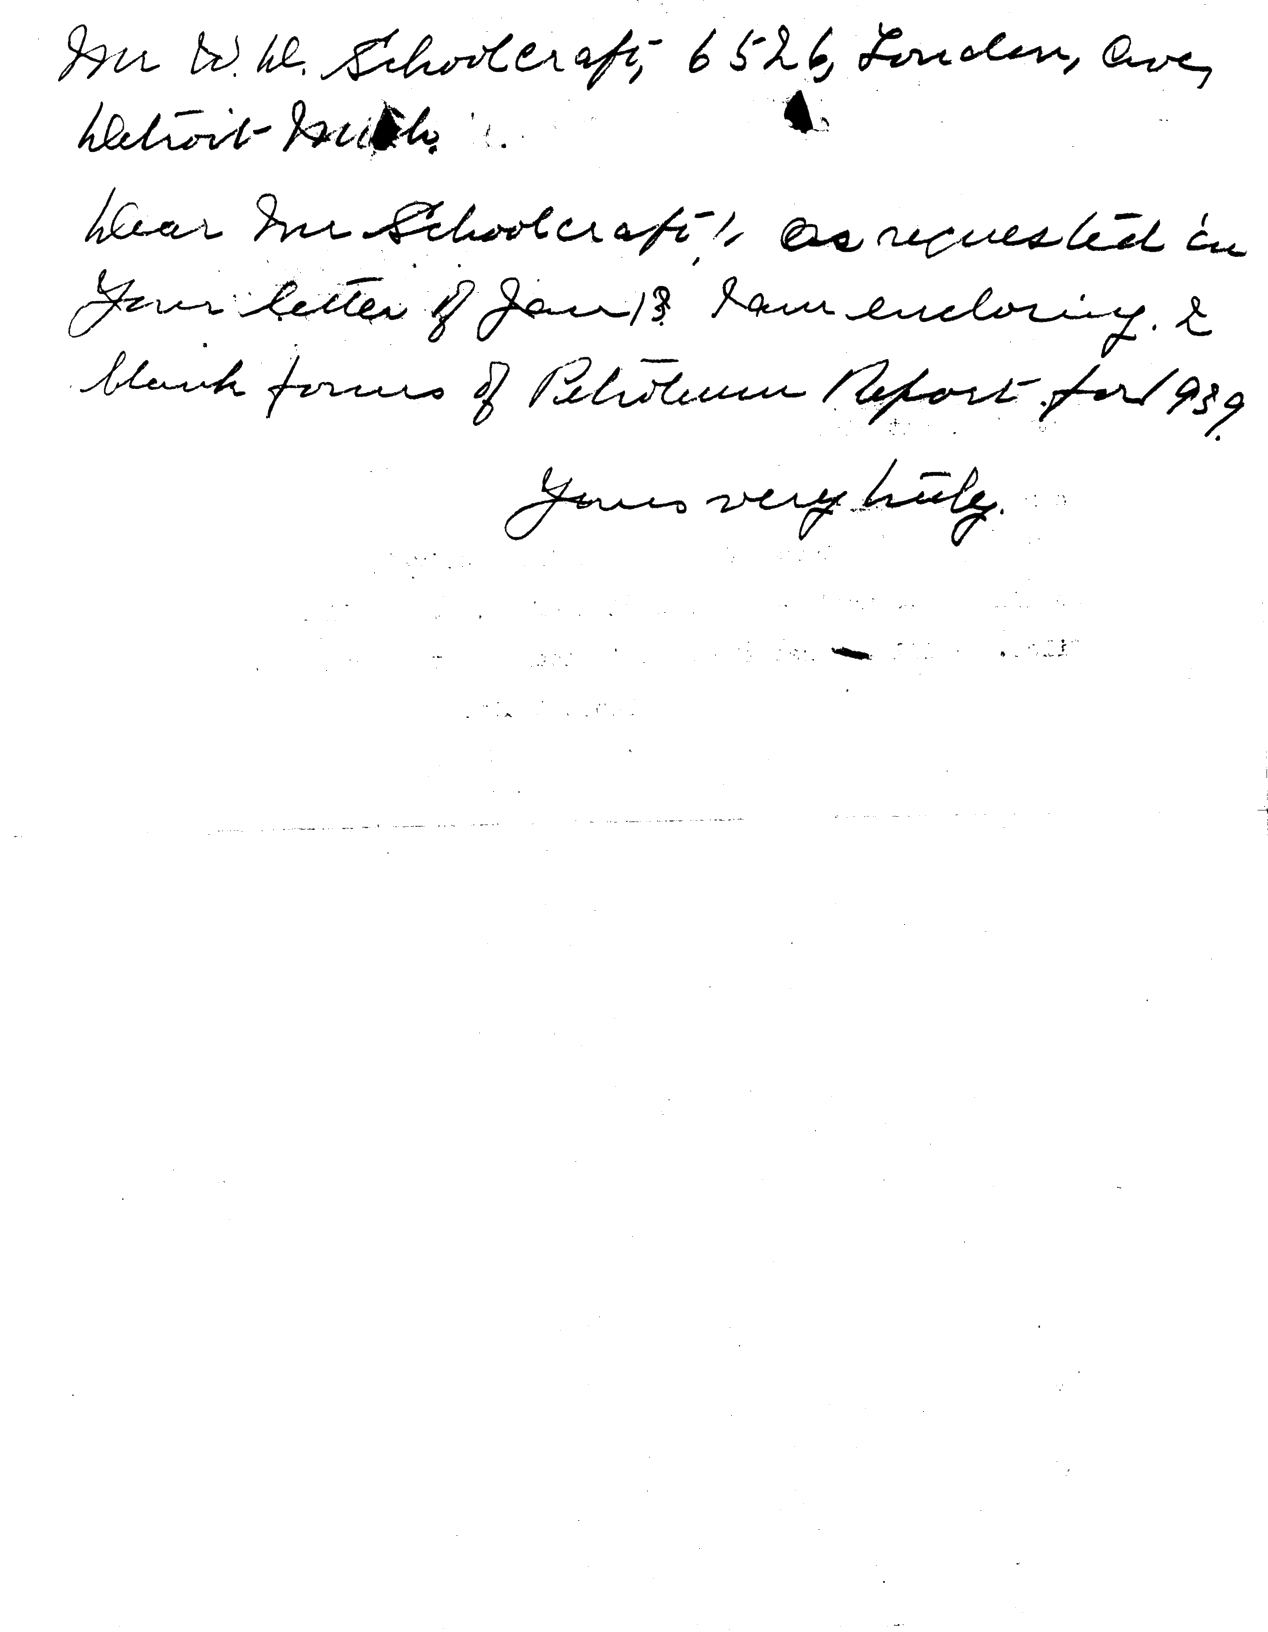 Mr W. D. Schoolcraft, 6526, London, Ave,
Detroit Mich.
Dear Mr Schoolcraft:, As requested in
Your letter of Jan 13. I am enclosing. 2
blank forms of Petroleum Report for 1939.
Yours very truly.